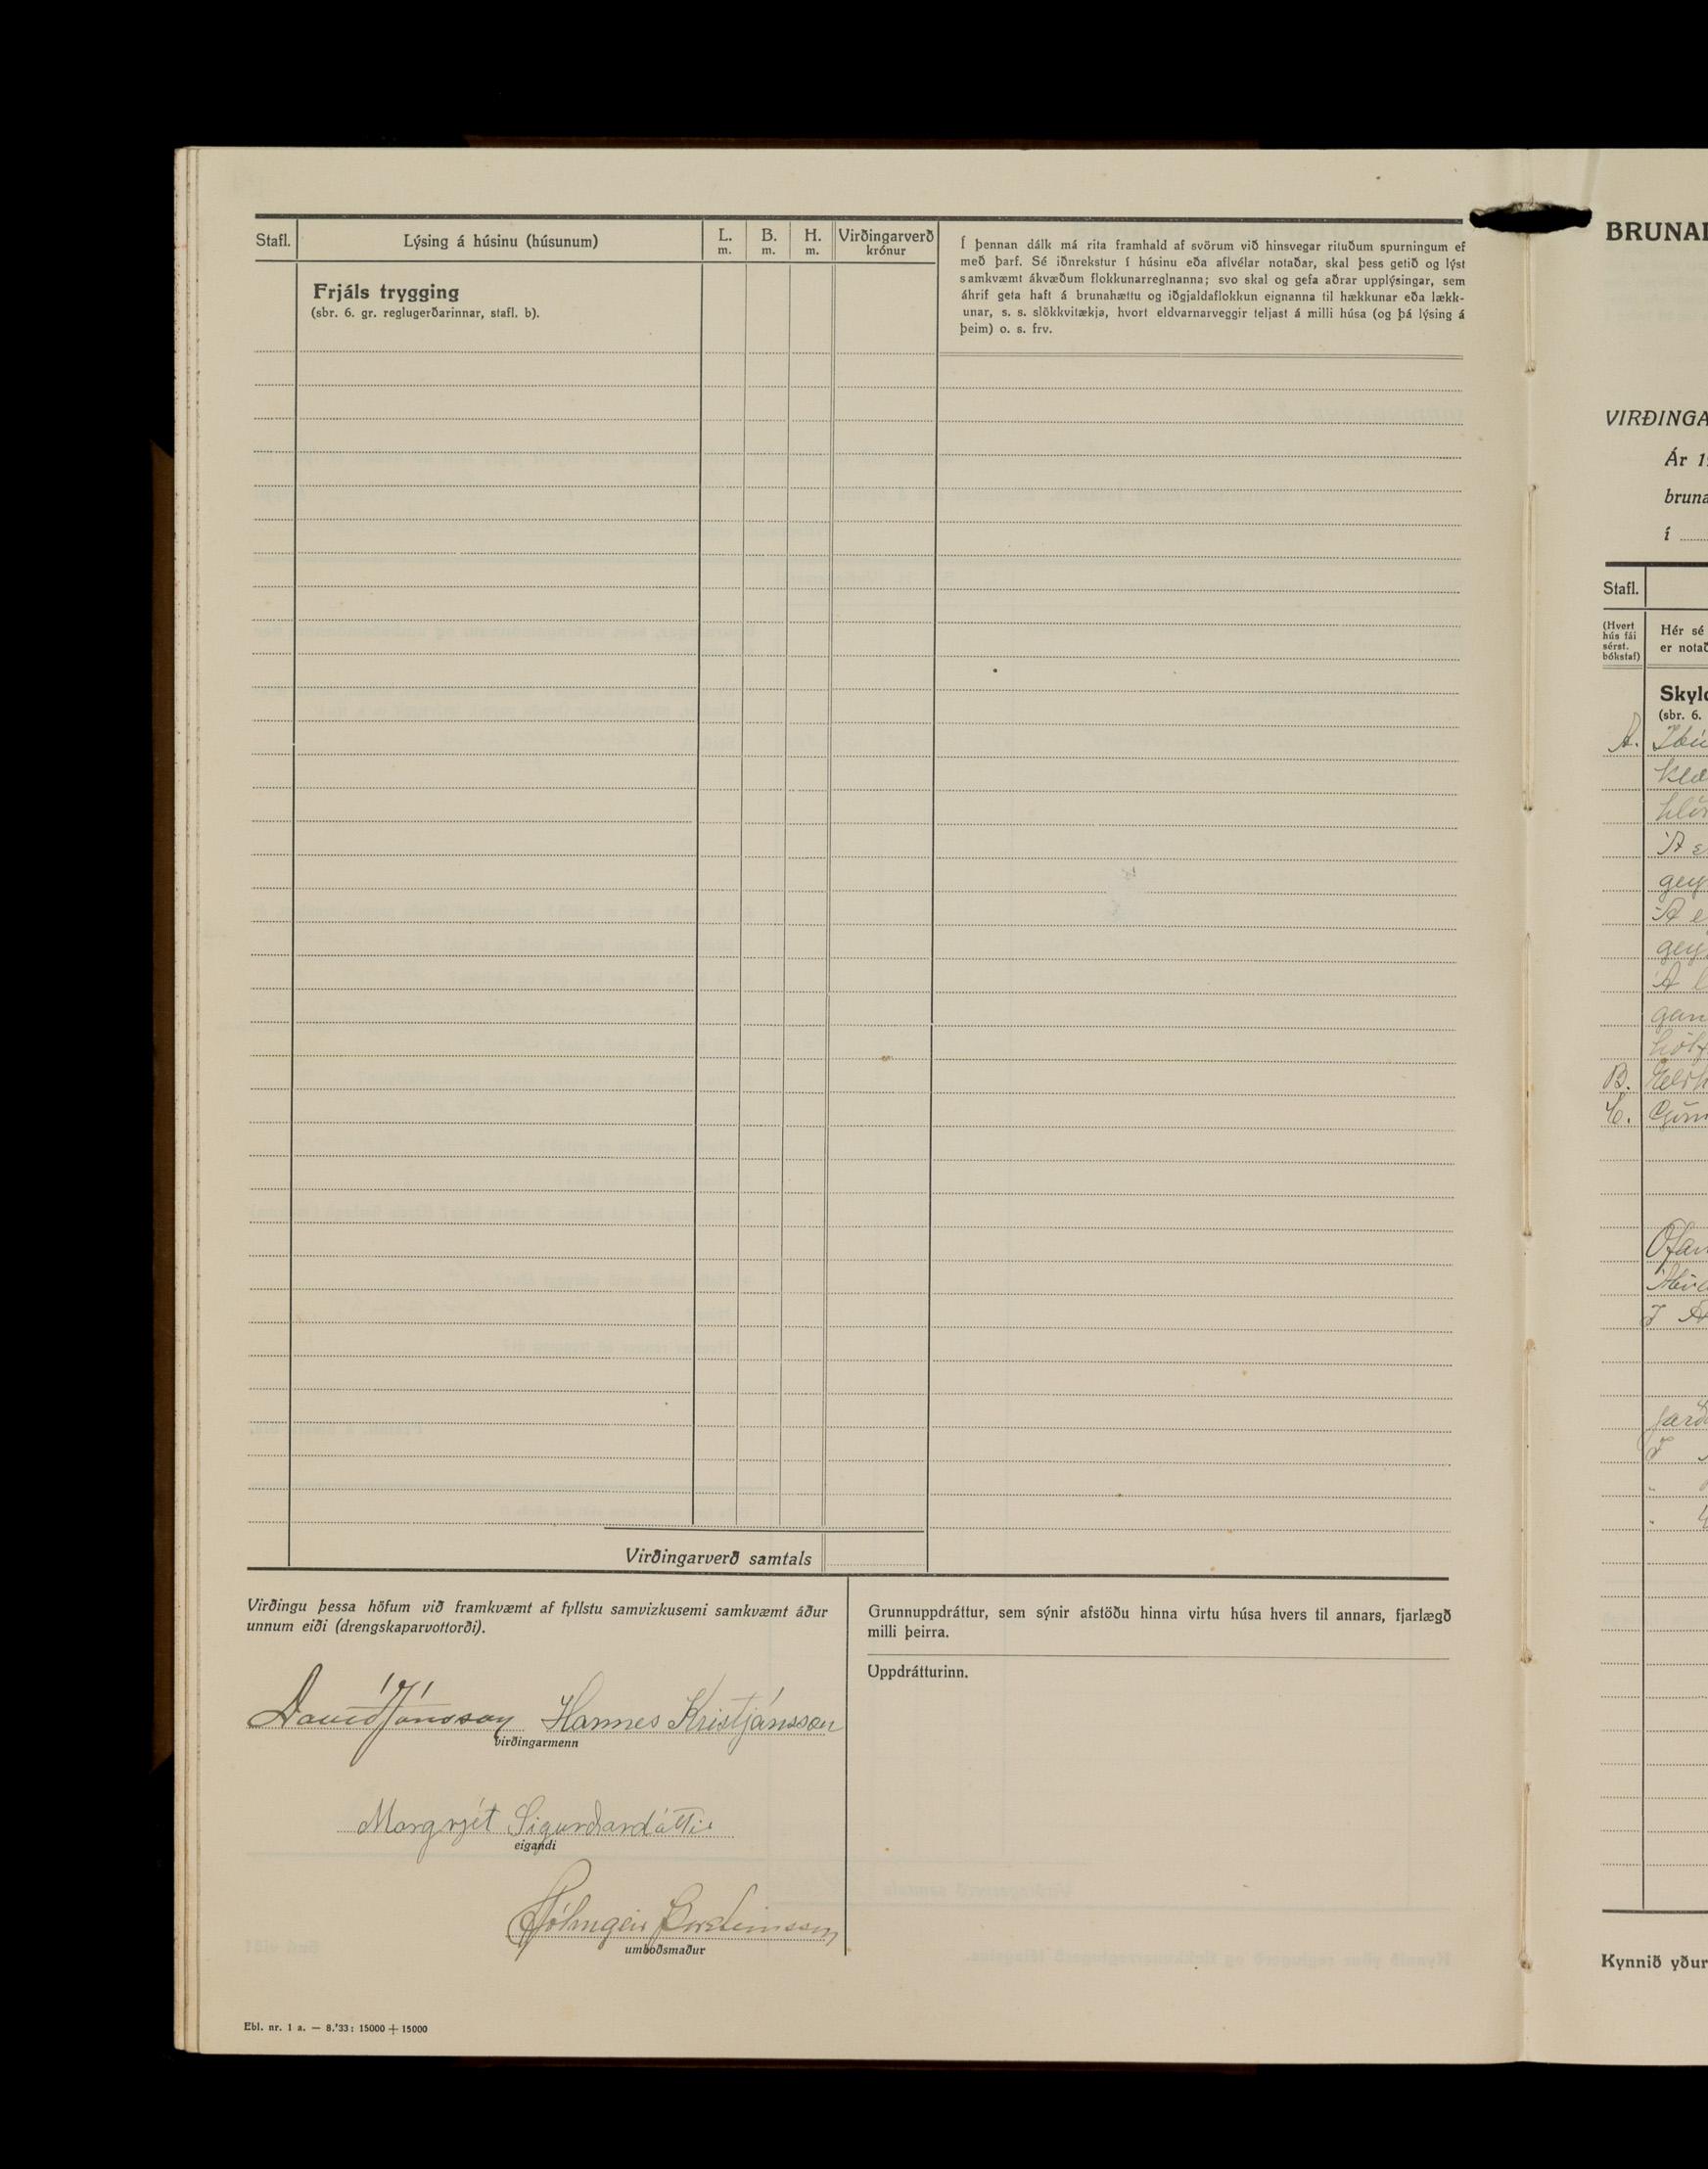 Stafl.
Lýsing á húsinu (húsunum)
L.
m.
B.
m.
H.
m.
Virðingarverð
krónur
Í þennan dálk má rita framhald af svörum við hinsvegar rituðum spurningum ef
með þarf. Sé iðnrekstur í húsinu eða aflvélar notaðar, skal þess getið og lýst
samkvæmt ákvæðum flokkunarreglnanna; svo skal og gefa aðrar upplýsingar, sem
áhrif geta haft á brunahættu og iðgjaldaflokkun eignanna til hækkunar eða lækk-
unar, s. s. slökkvitækja, hvort eldvarnarveggir teljast á milli húsa (og þá lýsing á
þeim) o. s. frv.
Frjáls trygging
(sbr. 6. gr. reglugerðarinnar, stafl. b).
Virðingarverð samtals
Virðingu þessa höfum við framkvæmt af fyllstu samvizkusemi samkvæmt áður
unnum eiði (drengskaparvottorði).
Davíð Jónsson Hannes Kristjánsson
virðingarmenn
Margrjét Sigurðardóttir
eigandi
Hólmgeir Þorsteinsson
umboðsmaður
Grunnuppdráttur, sem sýnir afstöðu hinna virtu húsa hvers til annars, fjarlægð
milli þeirra.
Uppdrátturinn.
Ebl. nr. 1 a. — 8.'33: 15000 + 15000
BRUNA
VIRÐINGA
Ár 1
bruna
í
Stafl.
(Hvert
hús fái
sérst.
bókstaf)
Hér sé
er notað
Skyld
(sbr. 6.
A. Íbú
klæ
A e
A e
B.
C.
Kynnið yður